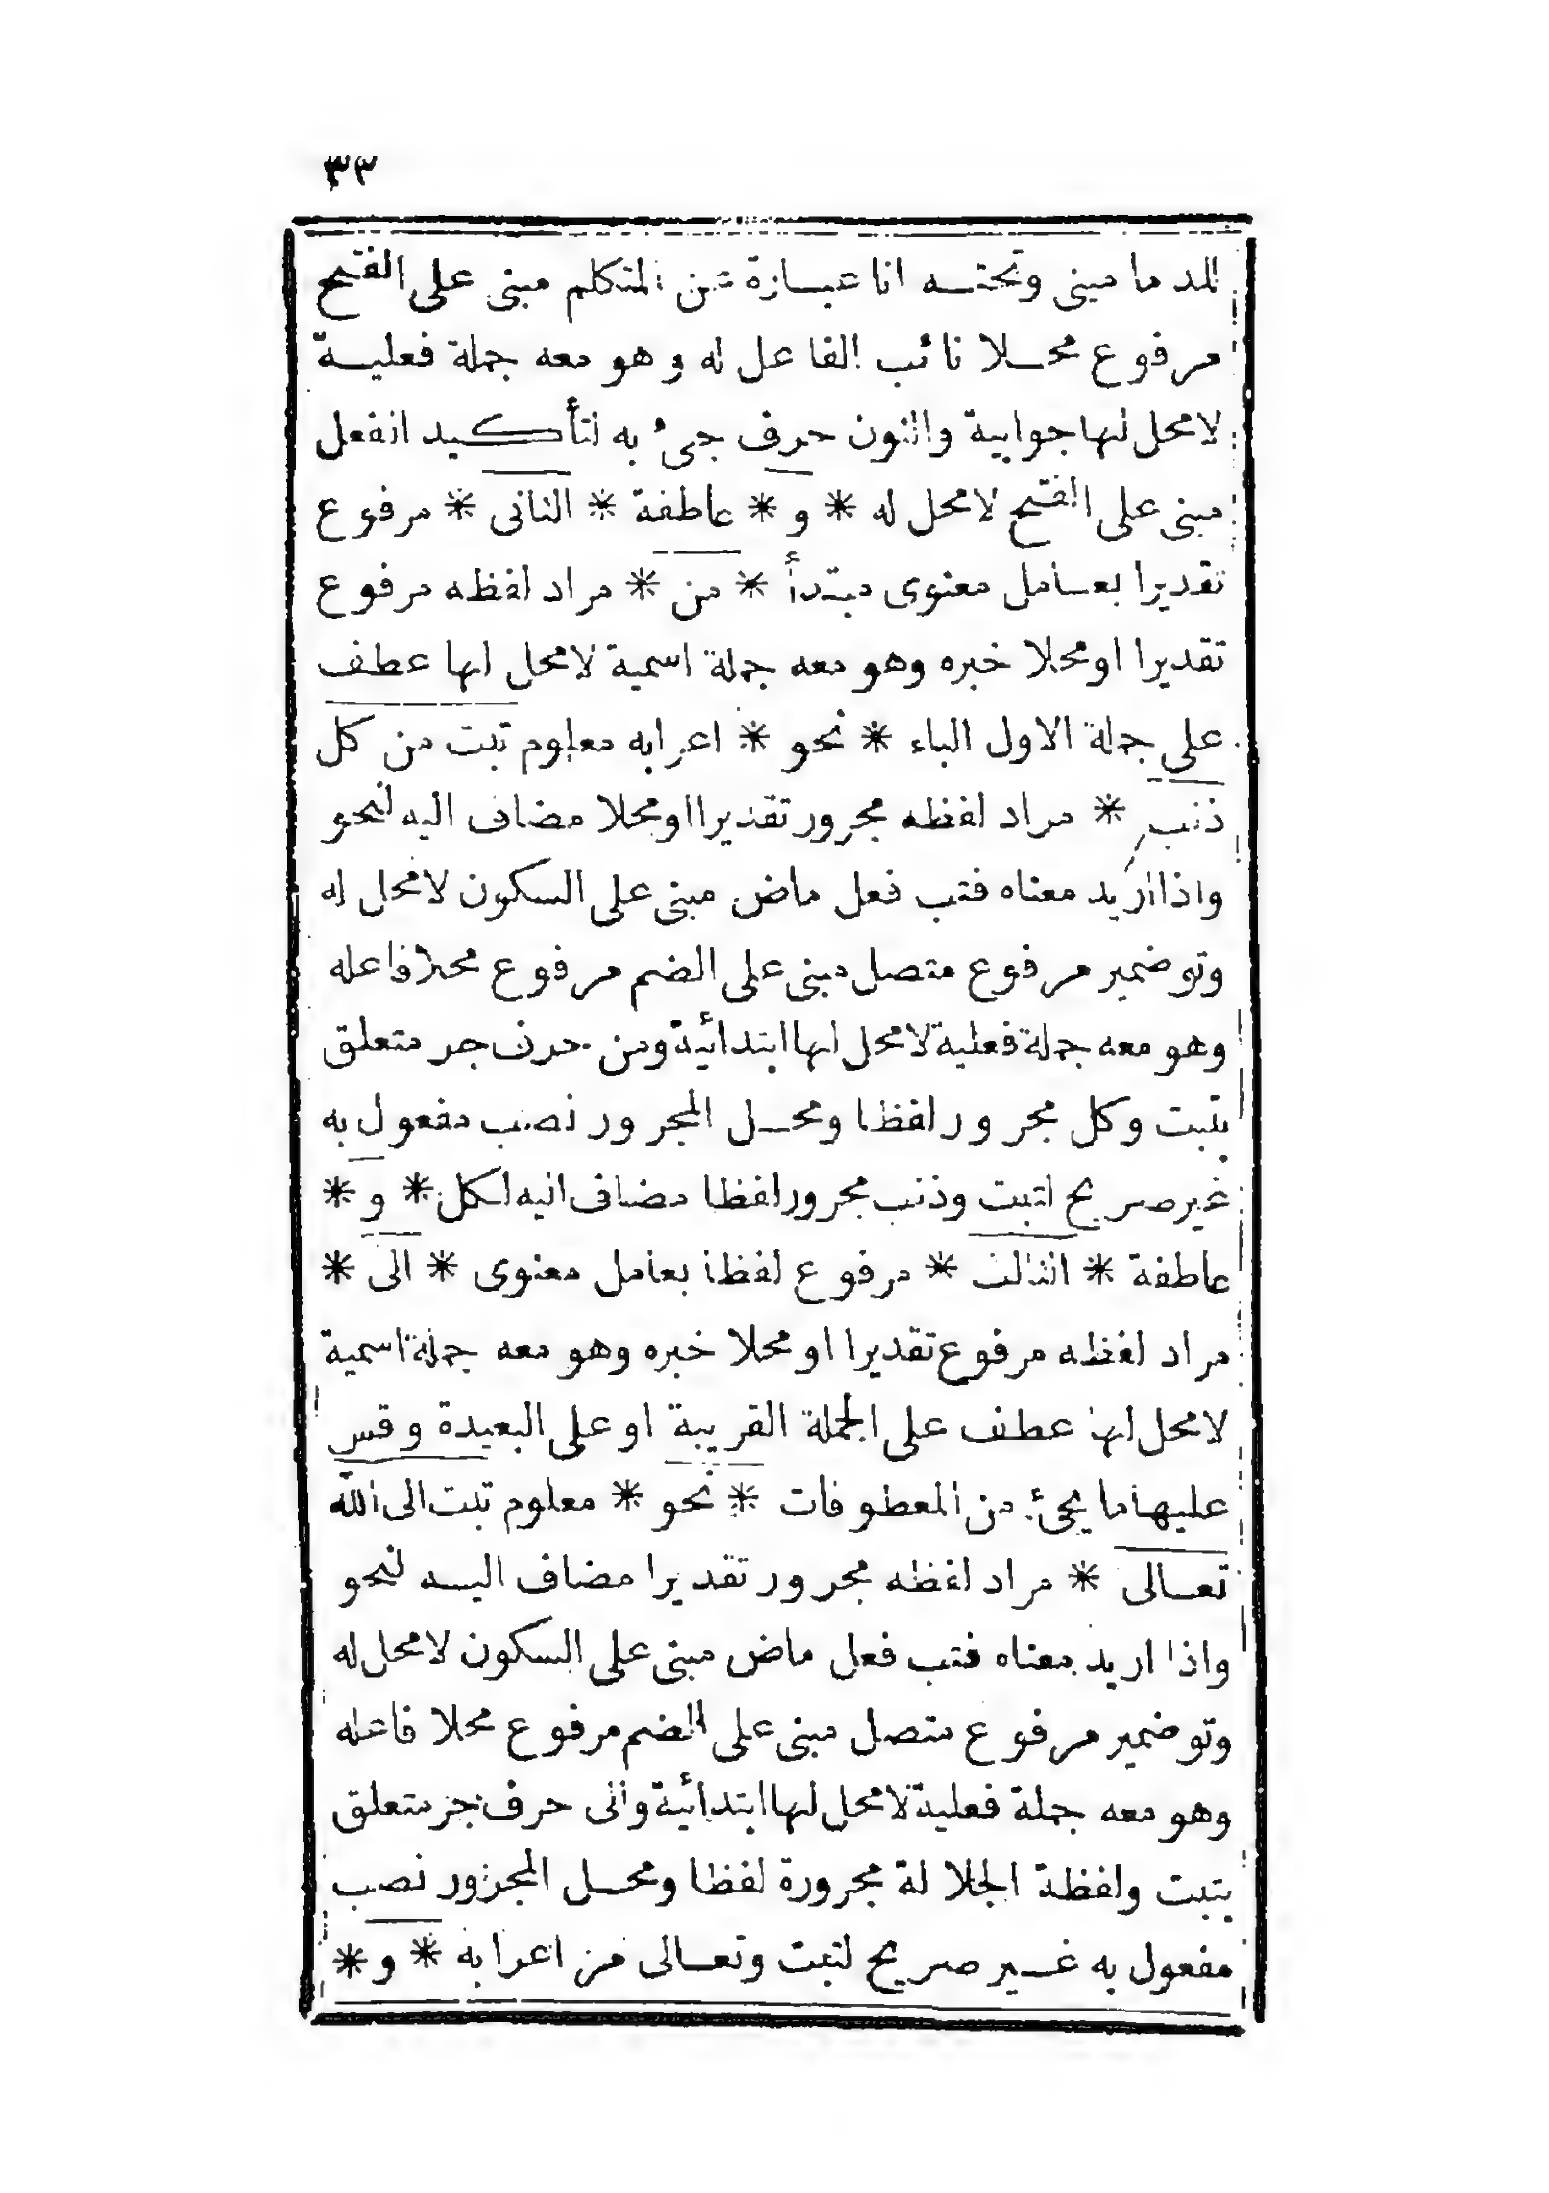 ٣٣
المد ما مبنى وتحتــه انا عبــارة عن المتكلم مبنى على الفتح
مرفوع محـلا نائب الفاعل له وهو معه جملة فعليــة
لامحل لها جوابية والنون حرف جىء به لتأكيد الفعل
مبنى على الفتح لامحل له * و * عاطفة * الثانى * مرفوع
تقديرا بعـامل معنوى مبتدأ * من * مراد لفظه مرفوع
تقديرا اومحلا خبره وهو معه جملة اسمية لامحل لها عطف
على جملة الاول الباء * نحو * اعرابه معلوم تبت من كل
ذنب * مراد لفظه مجرور تقديرا اومحلا مضاف اليه لنحو
واذا اريد معناه فتب فعل ماض مبنى على السكون لامحل له
وتو ضمير مرفوع متصل مبنى على الضم مرفوع محلا فاعله
وهو معه جملة فعلية لامحل لها ابتدائية ومن حرف جر متعلق
بتبت وكل مجرور لفظا ومحـل المجرور نصب مفعول به
غير صريح لتبت وذنب مجرور لفظا مضاف اليه لكل * و *
عاطفة * الثالث * مرفوع لفظا بعامل معنوى * الى *
مراد لفظه مرفوع تقديرا او محلا خبره وهو معه جملة اسمية
لامحل لها عطف على الجملة القريبة او على البعيدة وقس
عليها ما يجئ من المعطوفات * نحو * معلوم تبت الى الله
تعـالى * مراد لفظه مجرور تقديرا مضاف اليـه لنحو
واذا اريد معناه فتب فعل ماض مبنى على السكون لامحل له
وتو ضمير مرفوع متصل مبنى على الضم مرفوع محلا فاعله
وهو معه جملة فعلية لامحل لها ابتدائية والى حرف جر متعلق
بتبت ولفظة الجلالة مجرورة لفظا ومحـل المجرور نصب
مفعول به غـير صريح لتبت وتعـالى مر اعرابه * و *